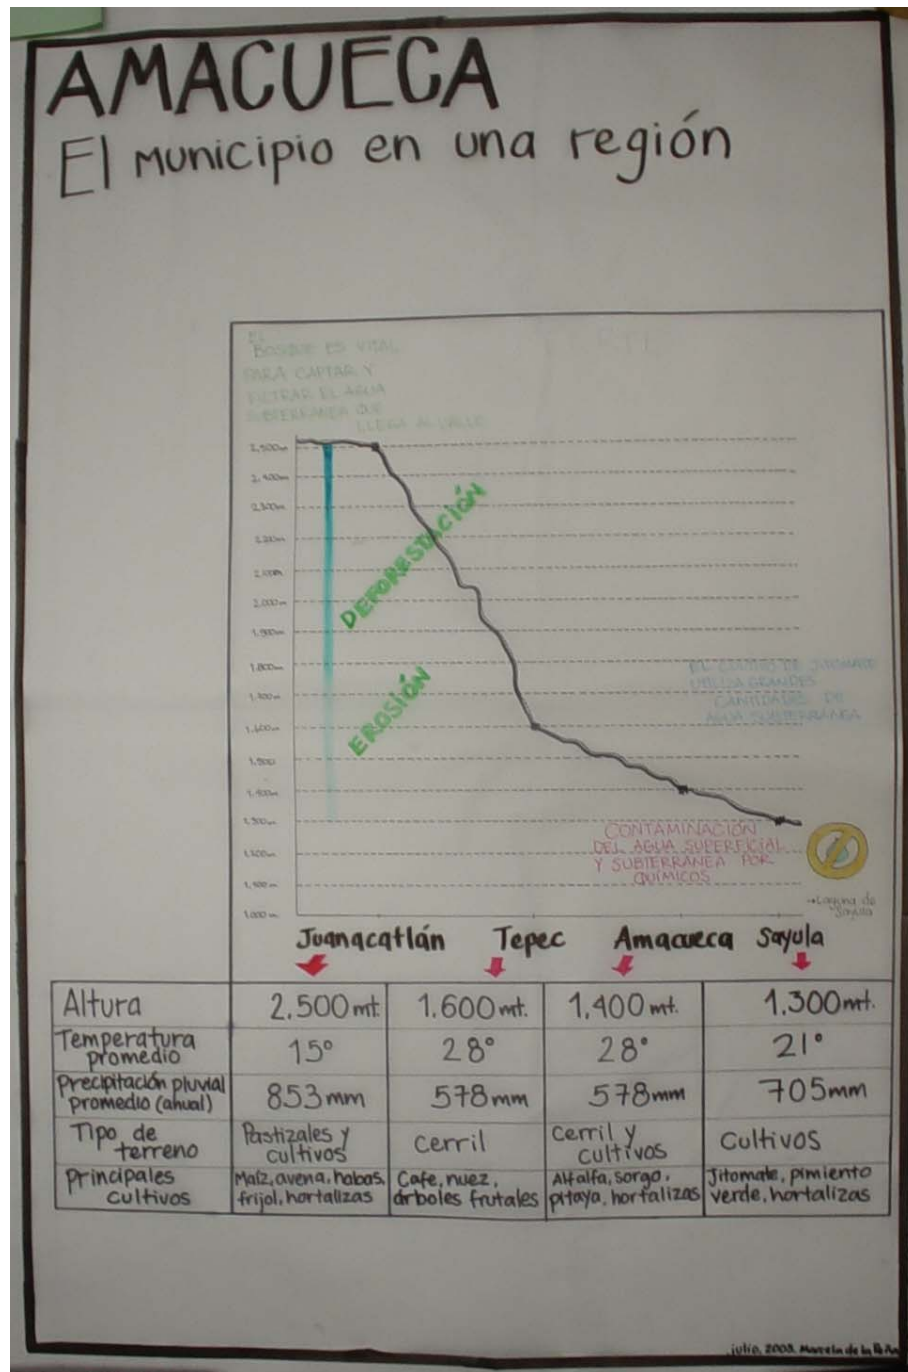 AMACUECA
El Municipio en una región
EL
BOSQUE ES VITAL
PARA CAPTAR Y
FILTRAR EL AGUA
SUBTERRANEA QUE
LLEGA AL VALLE
2,500m
2,400m
2,300m
2,200m
2,100m
2,000m
1,900m
1,800m
1,700m
1,600m
1,500
1,400m
1,300m
1,000m
DEFORESTACIÓN
EROSIÓN
EL CULTIVO DE JITOMATE
UTILIZA GRANDES
CANTIDADES DE
AGUA SUBTERRANEA
CONTAMINACIÓN
DEL AGUA SUPERFICIAL
Y SUBTERRANEA POR
QUÍMICOS
→Laguna de
Sayula
Juanacatlán Tepec Amacueca Sayula
Altura 2,500 mt. 1.600 mt. 1,400 mt. 1.300 mt.
Temperatura promedio 15° 28° 28° 21°
Precipitación pluvial promedio (anual) 853 mm 578 mm 578 mm 705 mm
Tipo de terreno Pastizales y cultivos Cerril Cerril y cultivos Cultivos
Principales cultivos Maíz, avena, habas, frijol, hortalizas Cafe, nuez, árboles frutales Alfalfa, sorgo, pitaya, hortalizas Jitomate, pimiento verde, hortalizas
julio, 2003. Marcela de la